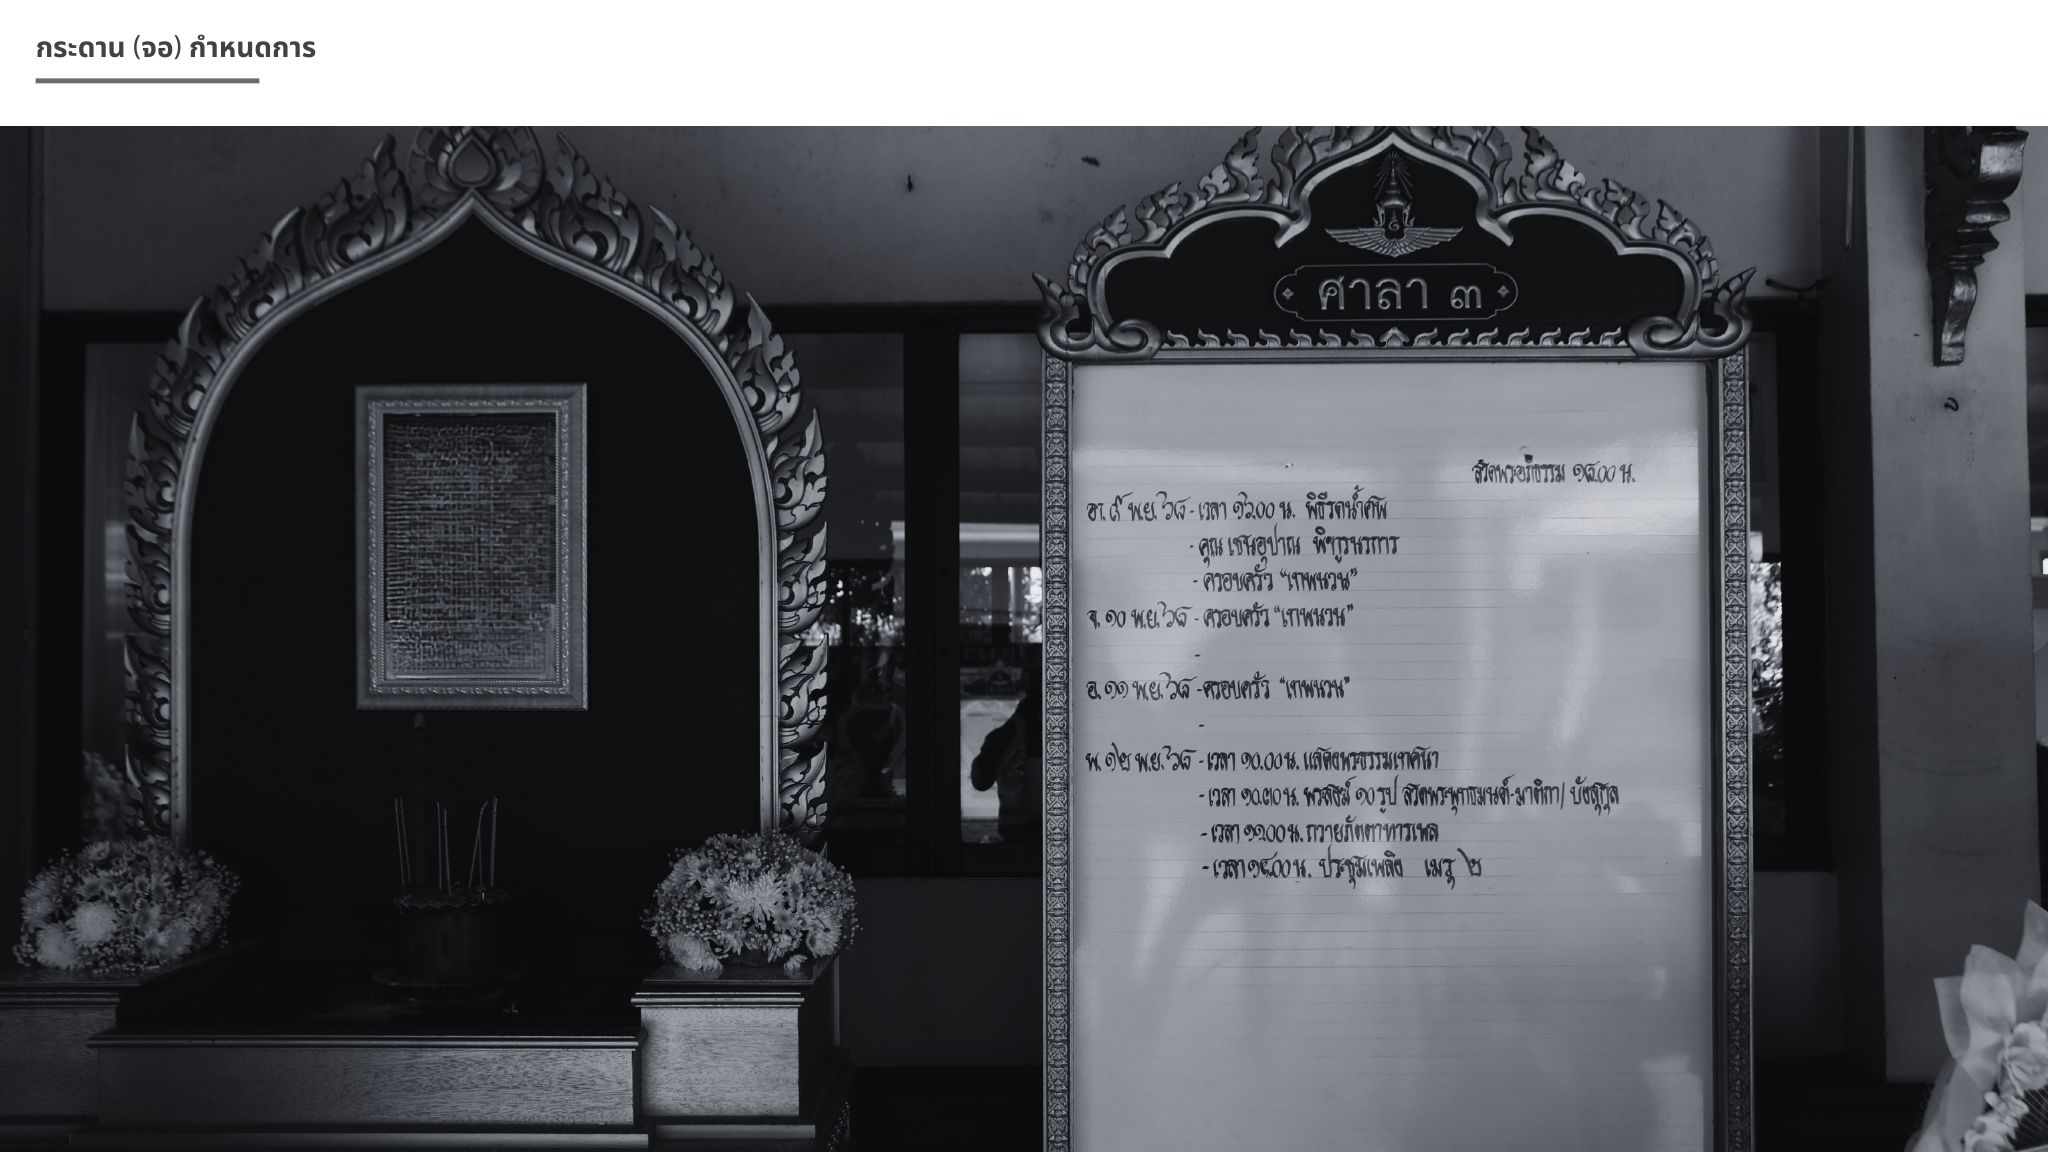 กระดาน (จอ) กำหนดการ
ศาลา ๓
สวดพระอภิธรรม ๑๘.๐๐ น.
อา. ๙ พ.ย. ๖๘ - เวลา ๑๖.๐๐ น. พิธีรดน้ำศพ
- คุณ
- ครอบครัว “เทพนวน”
จ. ๑๐ พ.ย. ๖๘ - ครอบครัว “เทพนวน”
-
อ. ๑๑ พ.ย. ๖๘ - ครอบครัว “เทพนวน”
-
พ. ๑๒ พ.ย. ๖๘ - เวลา ๑๐.๐๐ น. แสดงพระธรรมเทศนา
- เวลา ๑๐.๓๐ น. พระสงฆ์ ๑๐ รูป สวดพระพุทธมนต์-มาติกา/ บังสุกุล
- เวลา ๑๑.๐๐ น. ถวายภัตตาหารเพล
- เวลา ๑๔.๐๐ น. ประชุมเพลิง เมรุ ๒